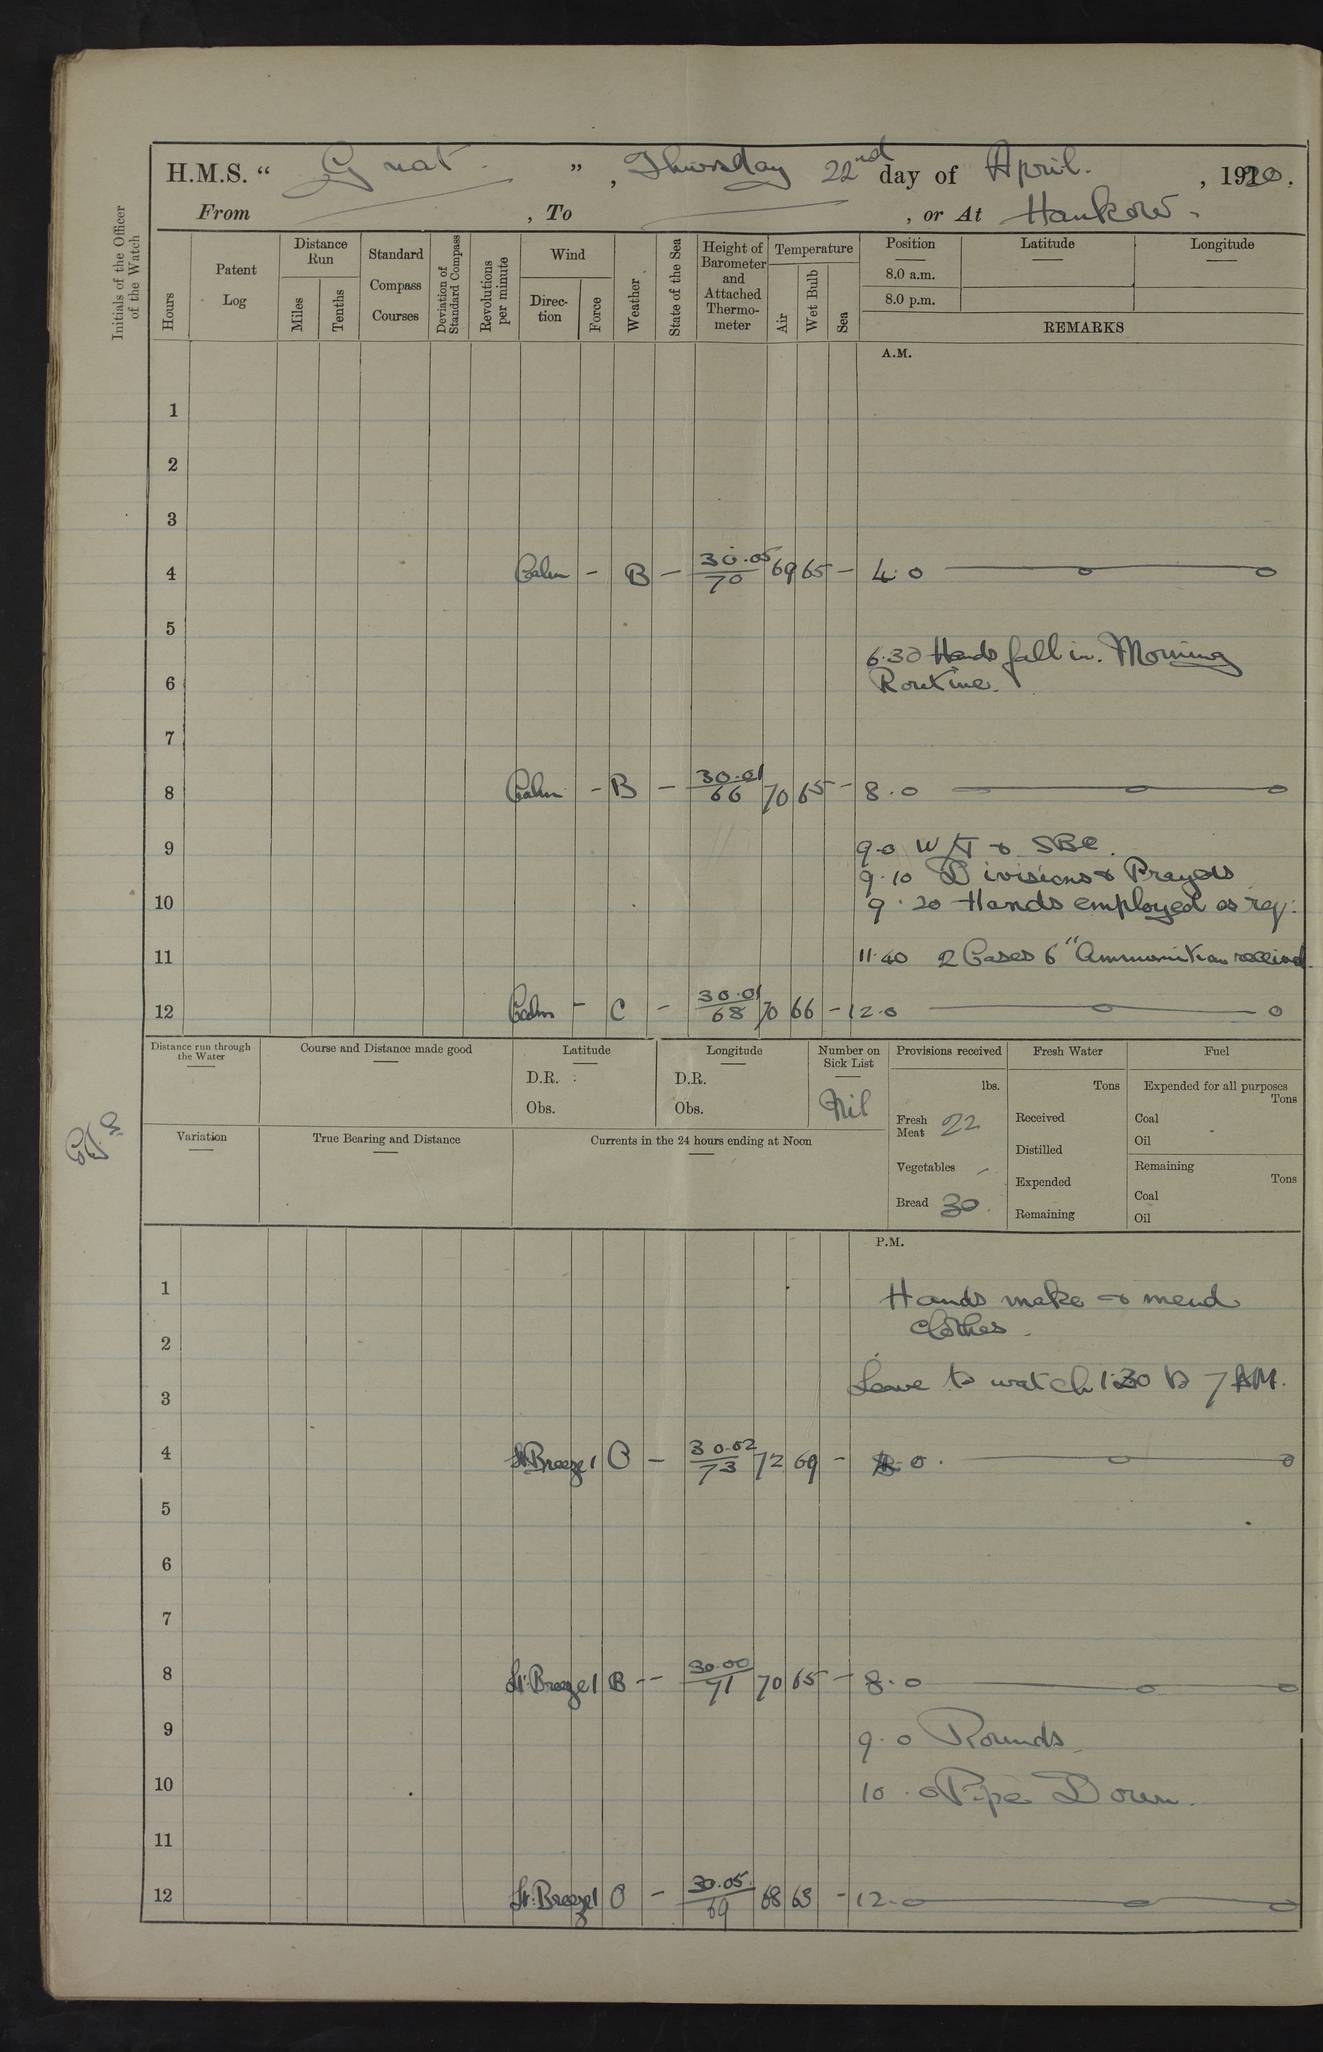 H.M.S. “ Gnat ” , Thursday 22nd day of April. , 1920.
From , To , or At Hankow.
Initials of the Officer of the Watch
Hours
Patent Log
Distance Run
Miles
Tenths
Standard Compass Courses
Deviation of Standard Compass
Revolutions per minute
Wind
Direc-tion
Force
Weather
State of the Sea
Height of Barometer and Attached Thermo-meter
Temperature
Air
Wet Bulb
Sea
Position
8.0 a.m.
8.0 p.m.
Latitude
Longitude
REMARKS
A.M.
1
2
3
4 Calm - B - 30.05/70 69 65 - 4.0
5
6.30 Hands fall in. Morning
6 Routine.
7
8 Calm - B - 30.01/66 70 65 - 8.0
9 9.0 W/T & SBC.
9.10 Divisions & Prayers
10 9.20 Hands employed as req:
11 11.40 2 Cases 6" Ammunition received
12 Calm - C - 30.01/68 70 66 - 12.0
Distance run through the Water
Course and Distance made good
Latitude
D.R.
Obs.
Longitude
D.R.
Obs.
Number on Sick List
Nil
Provisions received
lbs.
Fresh Meat 22
Vegetables -
Bread 30.
Fresh Water
Tons
Received
Distilled
Expended
Remaining
Fuel
Expended for all purposes
Tons
Coal
Oil
Remaining
Tons
Coal
Oil
Variation
True Bearing and Distance
Currents in the 24 hours ending at Noon
P.M.
1 Hands make & mend
2 clothes.
3 Leave to watch 1.30 to 7 AM.
4 Lt Breeze 1 O - 30.02/73 72 69 - 4.0.
5
6
7
8 Lt. Breeze 1 B -- 30.00/71 70 65 - 8.0
9 9.0 Rounds
10 10.0 Pipe Down.
11
12 Lt. Breeze 1 O - 30.05/69 68 63 - 12.0